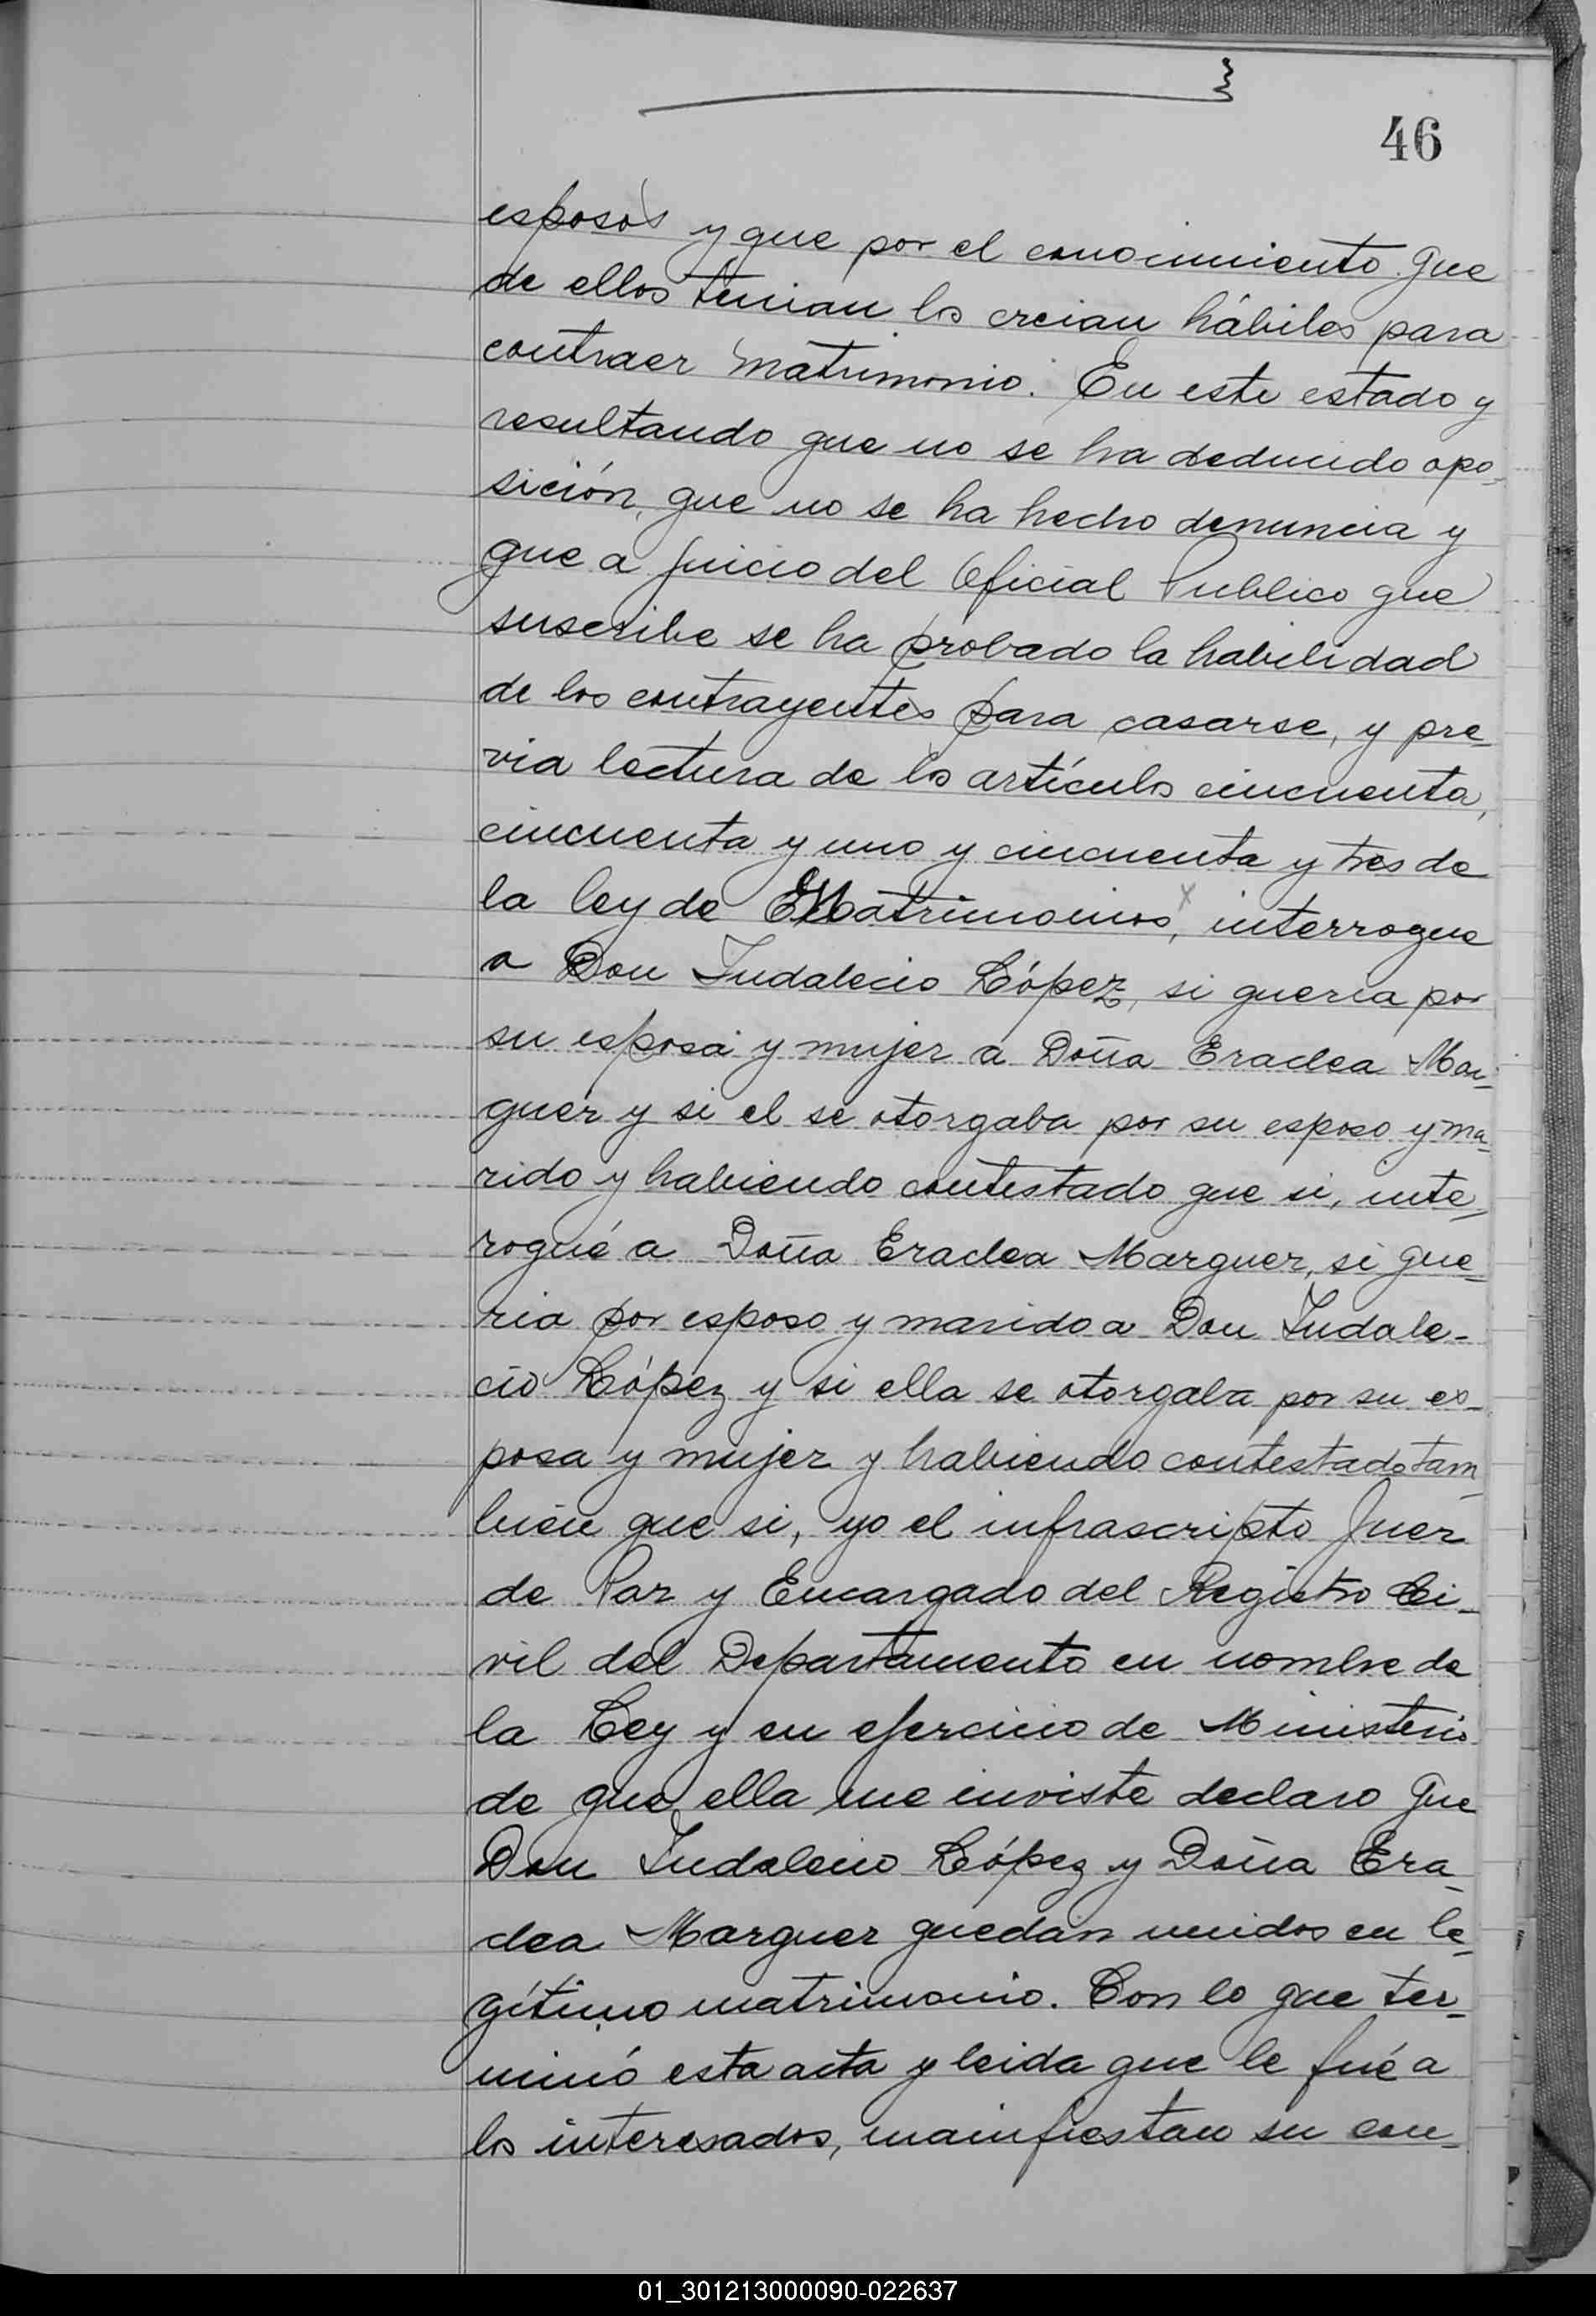 46
esposos y que por el conocimiento que
de ellos tenian los creian hábiles para
contraer matrimonio. En este estado y
resultando que no se ha deducido opo-
sición, que no se ha hecho denuncia y
que a juicio del Oficial Publico que
suscribe se ha probado la habilidad
de los contrayentes para casarse, y pre-
via lectura de los artículos cincuenta,
cincuenta y uno y cincuenta y tres de
la ley de Matrimonios, interrogue
a Don Indalecio López, si queria por
su esposa y mujer a Doña Eraclea Mar-
guer y si el se otorgaba por su esposo y ma-
rido y habiendo contestado que si, inte-
rogué a Doña Eraclea Marguer, si que-
ria por esposo y marido a Don Indale-
cio López y si ella se otorgaba por su es-
posa y mujer y habiendo contestado tam-
bién que si, yo el infrascripto Juez
de Paz y Encargado del Registro Ci-
vil del Departamento en nombre de
la Ley y en ejercicio de Ministerio
de que ella me inviste declaro que
Don Indalecio López y Doña Era-
clea Marguer quedan unidos en le-
gítimo matrimonio. Con lo que ter-
minó esta acta y leida que le fué a
los interesados, mainfiestan su con-
01_301213000090-022637